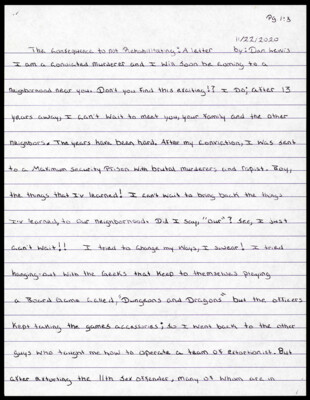 Pg 1:3
11/22/2020
The Consequence to not Rehabilitating: A letter by: Dan Lewis
I am a convicted murderer and I will soon be coming to a
neighborhood near you. Don't you find this exciting!? I Do; after 13
years away, I can't wait to meet you, your Family and the other
neighbors. The years have been hard. After my conviction, I was sent
to a Maximum security Prison with brutal murderers and rapist. Boy,
the things that I'v learned! I can't wait to bring back the things
I'v learned, to our neighborhood. Did I say, "our"? See, I just
can't wait!! I tried to change my ways, I swear! I tried
hanging-out with the Geeks that keep to themselves playing
a Board Game called, "Dungeons and Dragons" but the officers
kept taking the games accessories; so I went back to the other
guys who taught me how to operate a team of extortionist. But
after extorting the 11th sex offender, many of whom are in